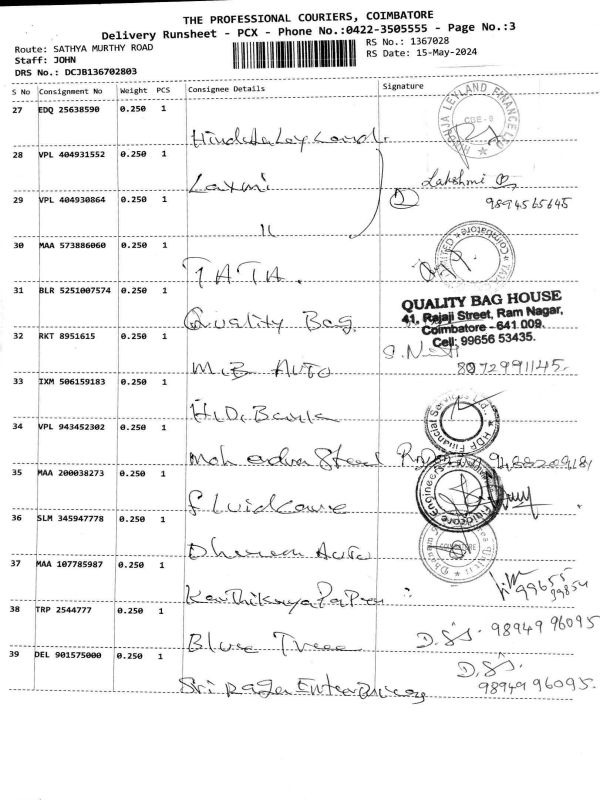 THE PROFESSIONAL COURIERS, COIMBATORE
Delivery Runsheet - PCX - Phone No.:0422-3505555 - Page No.:3
Route: SATHYA MURTHY ROAD
RS No.: 1367028
Staff: JOHN
RS Date: 15-May-2024
DRS No.: DCJB136702803
S No Consignment No Weight PCS Consignee Details Signature
27 EDQ 25638590 0.250 1
HINDUJA LEYLAND FINANCE LTD
CBE-6
28 VPL 404931552 0.250 1
Laxmi Lakshmi
29 VPL 404930864 0.250 1 9894565645
11
30 MAA 573886060 0.250 1
TATA.
31 BLR 5251007574 0.250 1
QUALITY BAG HOUSE
41, Rajaji Street, Ram Nagar,
Quality Bag
Coimbatore - 641 009.
Cell: 99656 53435.
32 RKT 8951615 0.250 1
M.B AUTO 8072991145.
33 IXM 506159183 0.250 1
34 VPL 943452302 0.250 1
HDF Financial Services Ltd.
35 MAA 200038273 0.250 1
Fluidcore Engineers
36 SLM 345947778 0.250 1
Auto
COIMBATORE
37 MAA 107785987 0.250 1
99655
99854
38 TRP 2544777 0.250 1
Blue Tree 98949 96095
39 DEL 901575000 0.250 1
98949 96095.
Sri Raga Enterprises